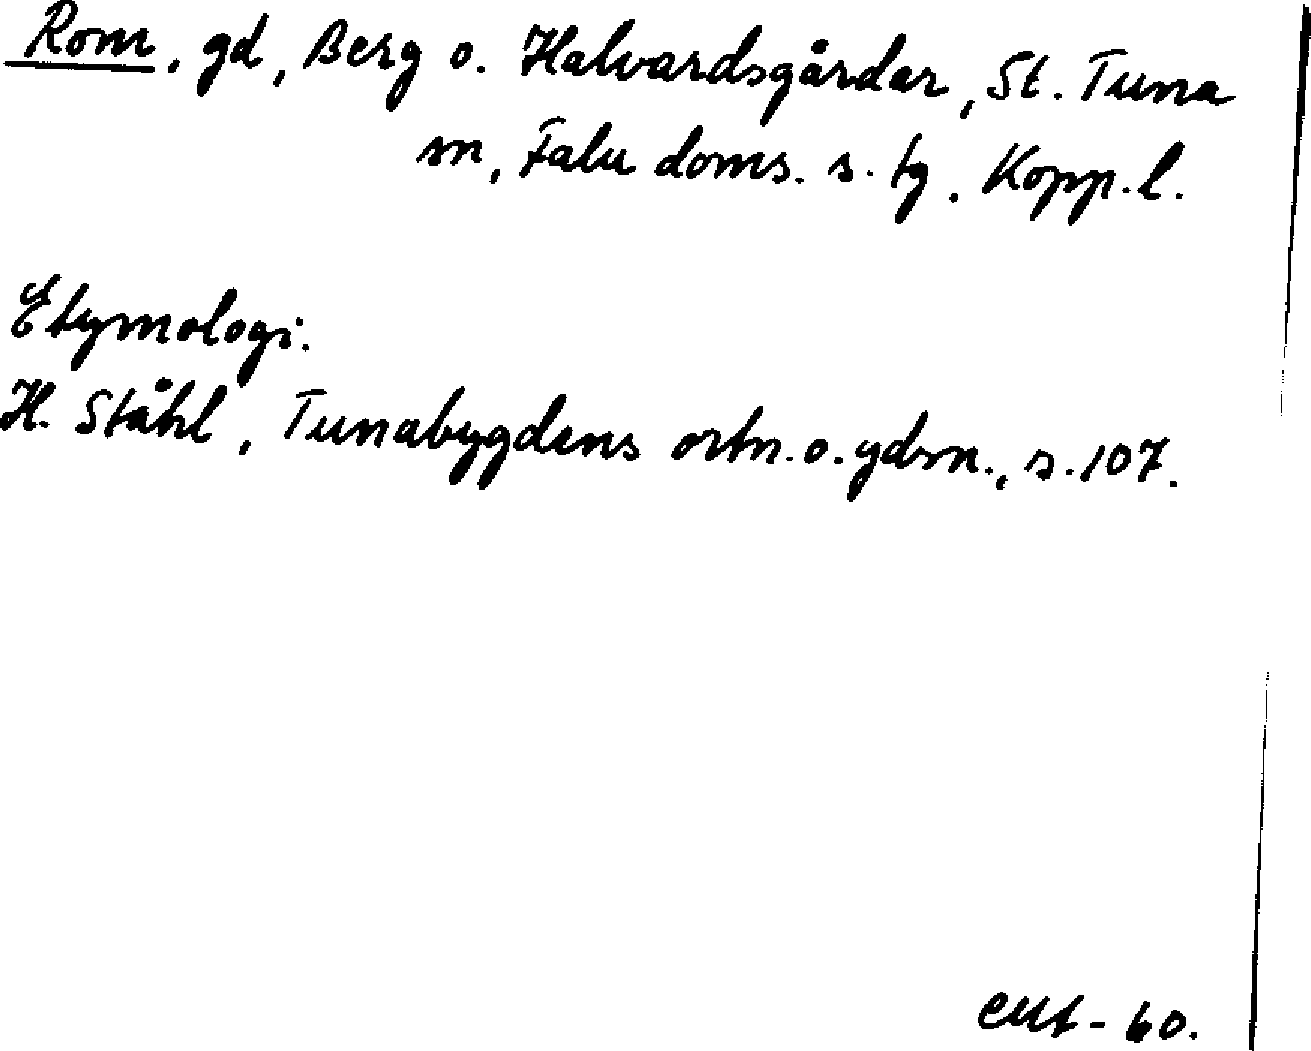 Rom, gd, Berg o. Halvardsgårdar, St. Tuna
sn, Falu doms. s. tg, Kopp. l.
Etymologi.
H. Ståhl, Tunabygdens ortn. o. gdsn., s. 107.
-60.